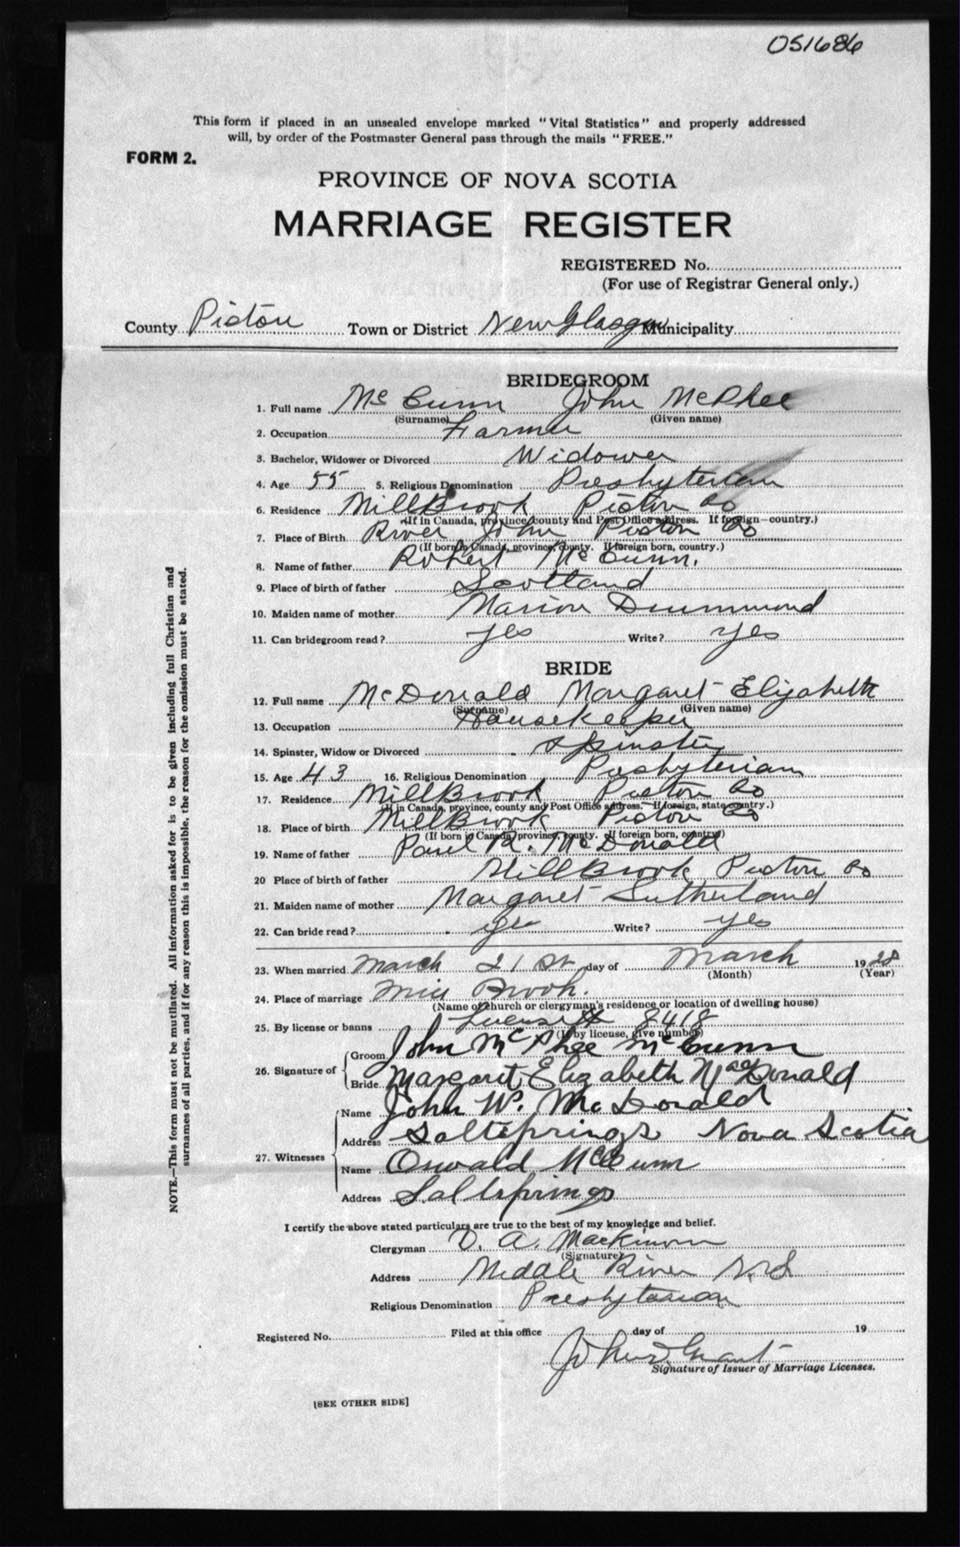 051686
This form if placed in an unsealed envelope marked "Vital Statistics" and properly addressed
will, by order of the Postmaster General pass through the mails "FREE."
FORM 2.
PROVINCE OF NOVA SCOTIA
MARRIAGE REGISTER
REGISTERED No.
(For use of Registrar General only.)
County Pictou Town or District New Glasgow Municipality
BRIDEGROOM
1. Full name McCunn John McPhee
(Surname) (Given name)
2. Occupation Farmer
3. Bachelor, Widower or Divorced Widower
4. Age 55 5. Religious Denomination Presbyterian
6. Residence MillBrook Pictou Co
(If in Canada, province, county and Post Office address. If foreign—country.)
7. Place of Birth River John Pictou Co
(If born in Canada, province, county. If foreign born, country.)
8. Name of father Robert McCunn.
9. Place of birth of father Scotland
10. Maiden name of mother Marion Drummond
11. Can bridegroom read? yes Write? yes
BRIDE
12. Full name McDonald Margaret Elizabeth
(Surname) (Given name)
13. Occupation Housekeeper
14. Spinster, Widow or Divorced Spinster
15. Age 43 16. Religious Denomination Presbyterian
17. Residence MillBrook Pictou Co
(If in Canada, province, county and Post Office address.—If foreign, state country.)
18. Place of birth MillBrook Pictou Co
(If born in Canada, province, county. If foreign born, country)
19. Name of father Paul R. McDonald
20 Place of birth of father MillBrook Pictou Co
21. Maiden name of mother Margaret Sutherland
22. Can bride read? yes Write? yes
23. When married March 21st day of March 1928
(Month) (Year)
24. Place of marriage Mill Brook.
(Name of church or clergyman's residence or location of dwelling house)
25. By license or banns License 8418
(If by license, give number)
26. Signature of
Groom John McPhee McCunn
Bride Margaret Elizabeth MacDonald
27. Witnesses
Name John W. McDonald
Address Saltsprings Nova Scotia
Name Oswald McCunn
Address Saltsprings
I certify the above stated particulars are true to the best of my knowledge and belief.
Clergyman D. A. Mackinnon
(Signature)
Address Middle River N.S
Religious Denomination Presbyterian
Registered No. Filed at this office day of 19
John Grant
Signature of Issuer of Marriage Licenses.
[SEE OTHER SIDE]
NOTE.—This form must not be mutilated. All information asked for is to be given including full Christian and
surnames of all parties, and if for any reason this is impossible, the reason for the omission must be stated.